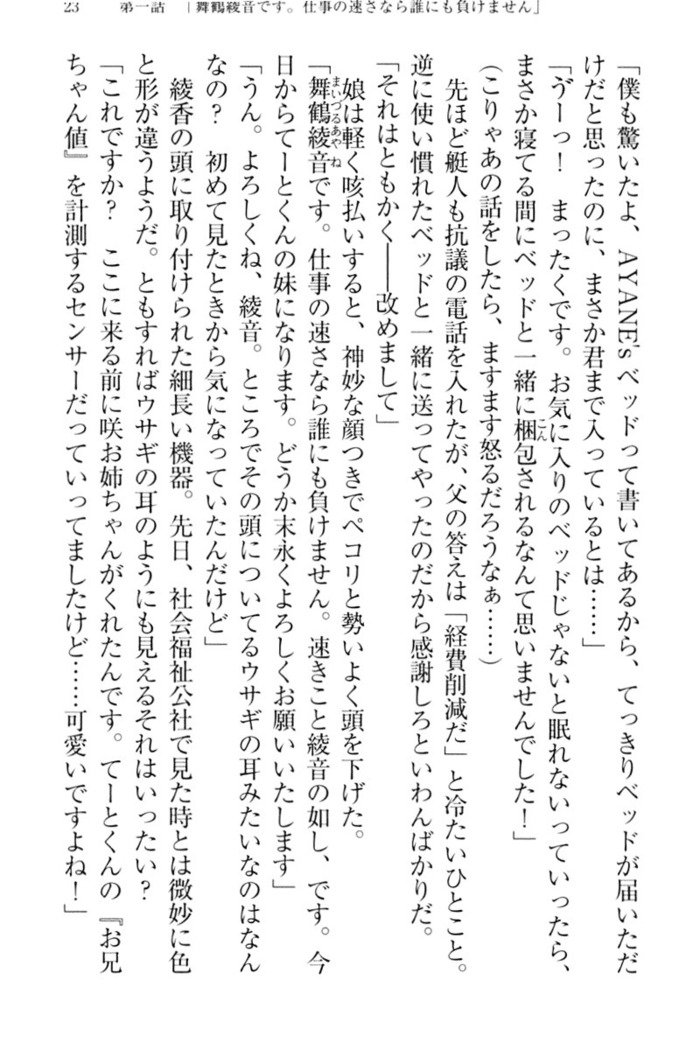 23　第一話　「舞鶴綾音です。仕事の速さなら誰にも負けません」
「僕も驚いたよ、AYANE'sベッドって書いてあるから、てっきりベッドが届いただ
けだと思ったのに、まさか君まで入っているとは……」
「ゔーっ！　まったくです。お気に入りのベッドじゃないと眠れないっていったら、
まさか寝てる間にベッドと一緒に梱包されるなんて思いませんでした！」
こん
（こりゃあの話をしたら、ますます怒るだろうなぁ……）
先ほど艇人も抗議の電話を入れたが、父の答えは「経費削減だ」と冷たいひとこと。
逆に使い慣れたベッドと一緒に送ってやったのだから感謝しろといわんばかりだ。
「それはともかく――改めまして」
娘は軽く咳払いすると、神妙な顔つきでペコリと勢いよく頭を下げた。
「舞鶴綾音です。仕事の速さなら誰にも負けません。速きこと綾音の如し、です。今
まいづるあやね
日からてーとくんの妹になります。どうか末永くよろしくお願いいたします」
「うん。よろしくね、綾音。ところでその頭についてるウサギの耳みたいなのはなん
なの？　初めて見たときから気になっていたんだけど」
綾香の頭に取り付けられた細長い機器。先日、社会福祉公社で見た時とは微妙に色
と形が違うようだ。ともすればウサギの耳のようにも見えるそれはいったい？
「これですか？　ここに来る前に咲お姉ちゃんがくれたんです。てーとくんの『お兄
ちゃん値』を計測するセンサーだっていってましたけど……可愛いですよね！」